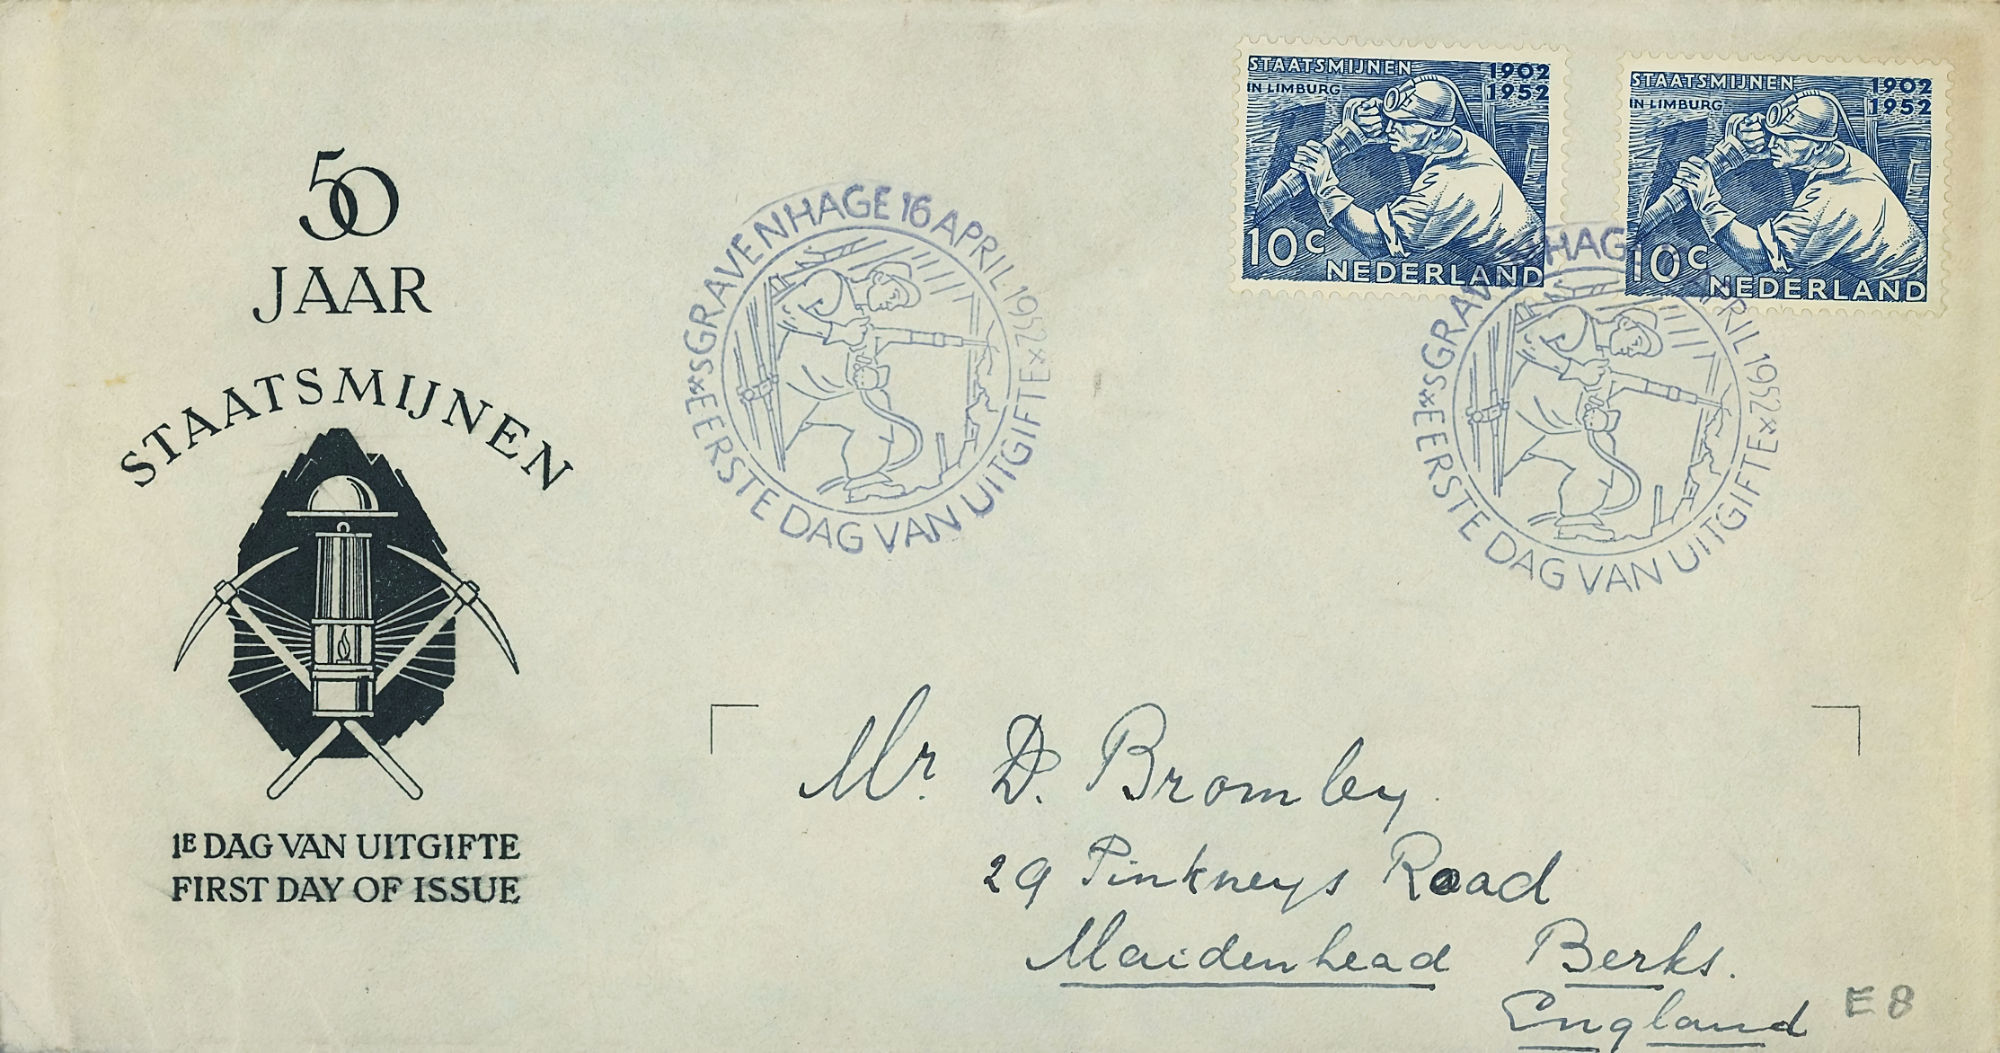 50
JAAR
STAATSMIJNEN
1E DAG VAN UITGIFTE
FIRST DAY OF ISSUE
sGRAVENHAGE 16 APRIL 1952
EERSTE DAG VAN UITGIFTE
STAATSMIJNEN 1902
IN LIMBURG 1952
10 C
NEDERLAND
STAATSMIJNEN 1902
IN LIMBURG 1952
10 C
NEDERLAND
sGRAVENHAGE 16 APRIL 1952
EERSTE DAG VAN UITGIFTE
Mr. D. Bromley
29 Pinkneys Road
Maidenhead Berks.
England
E8